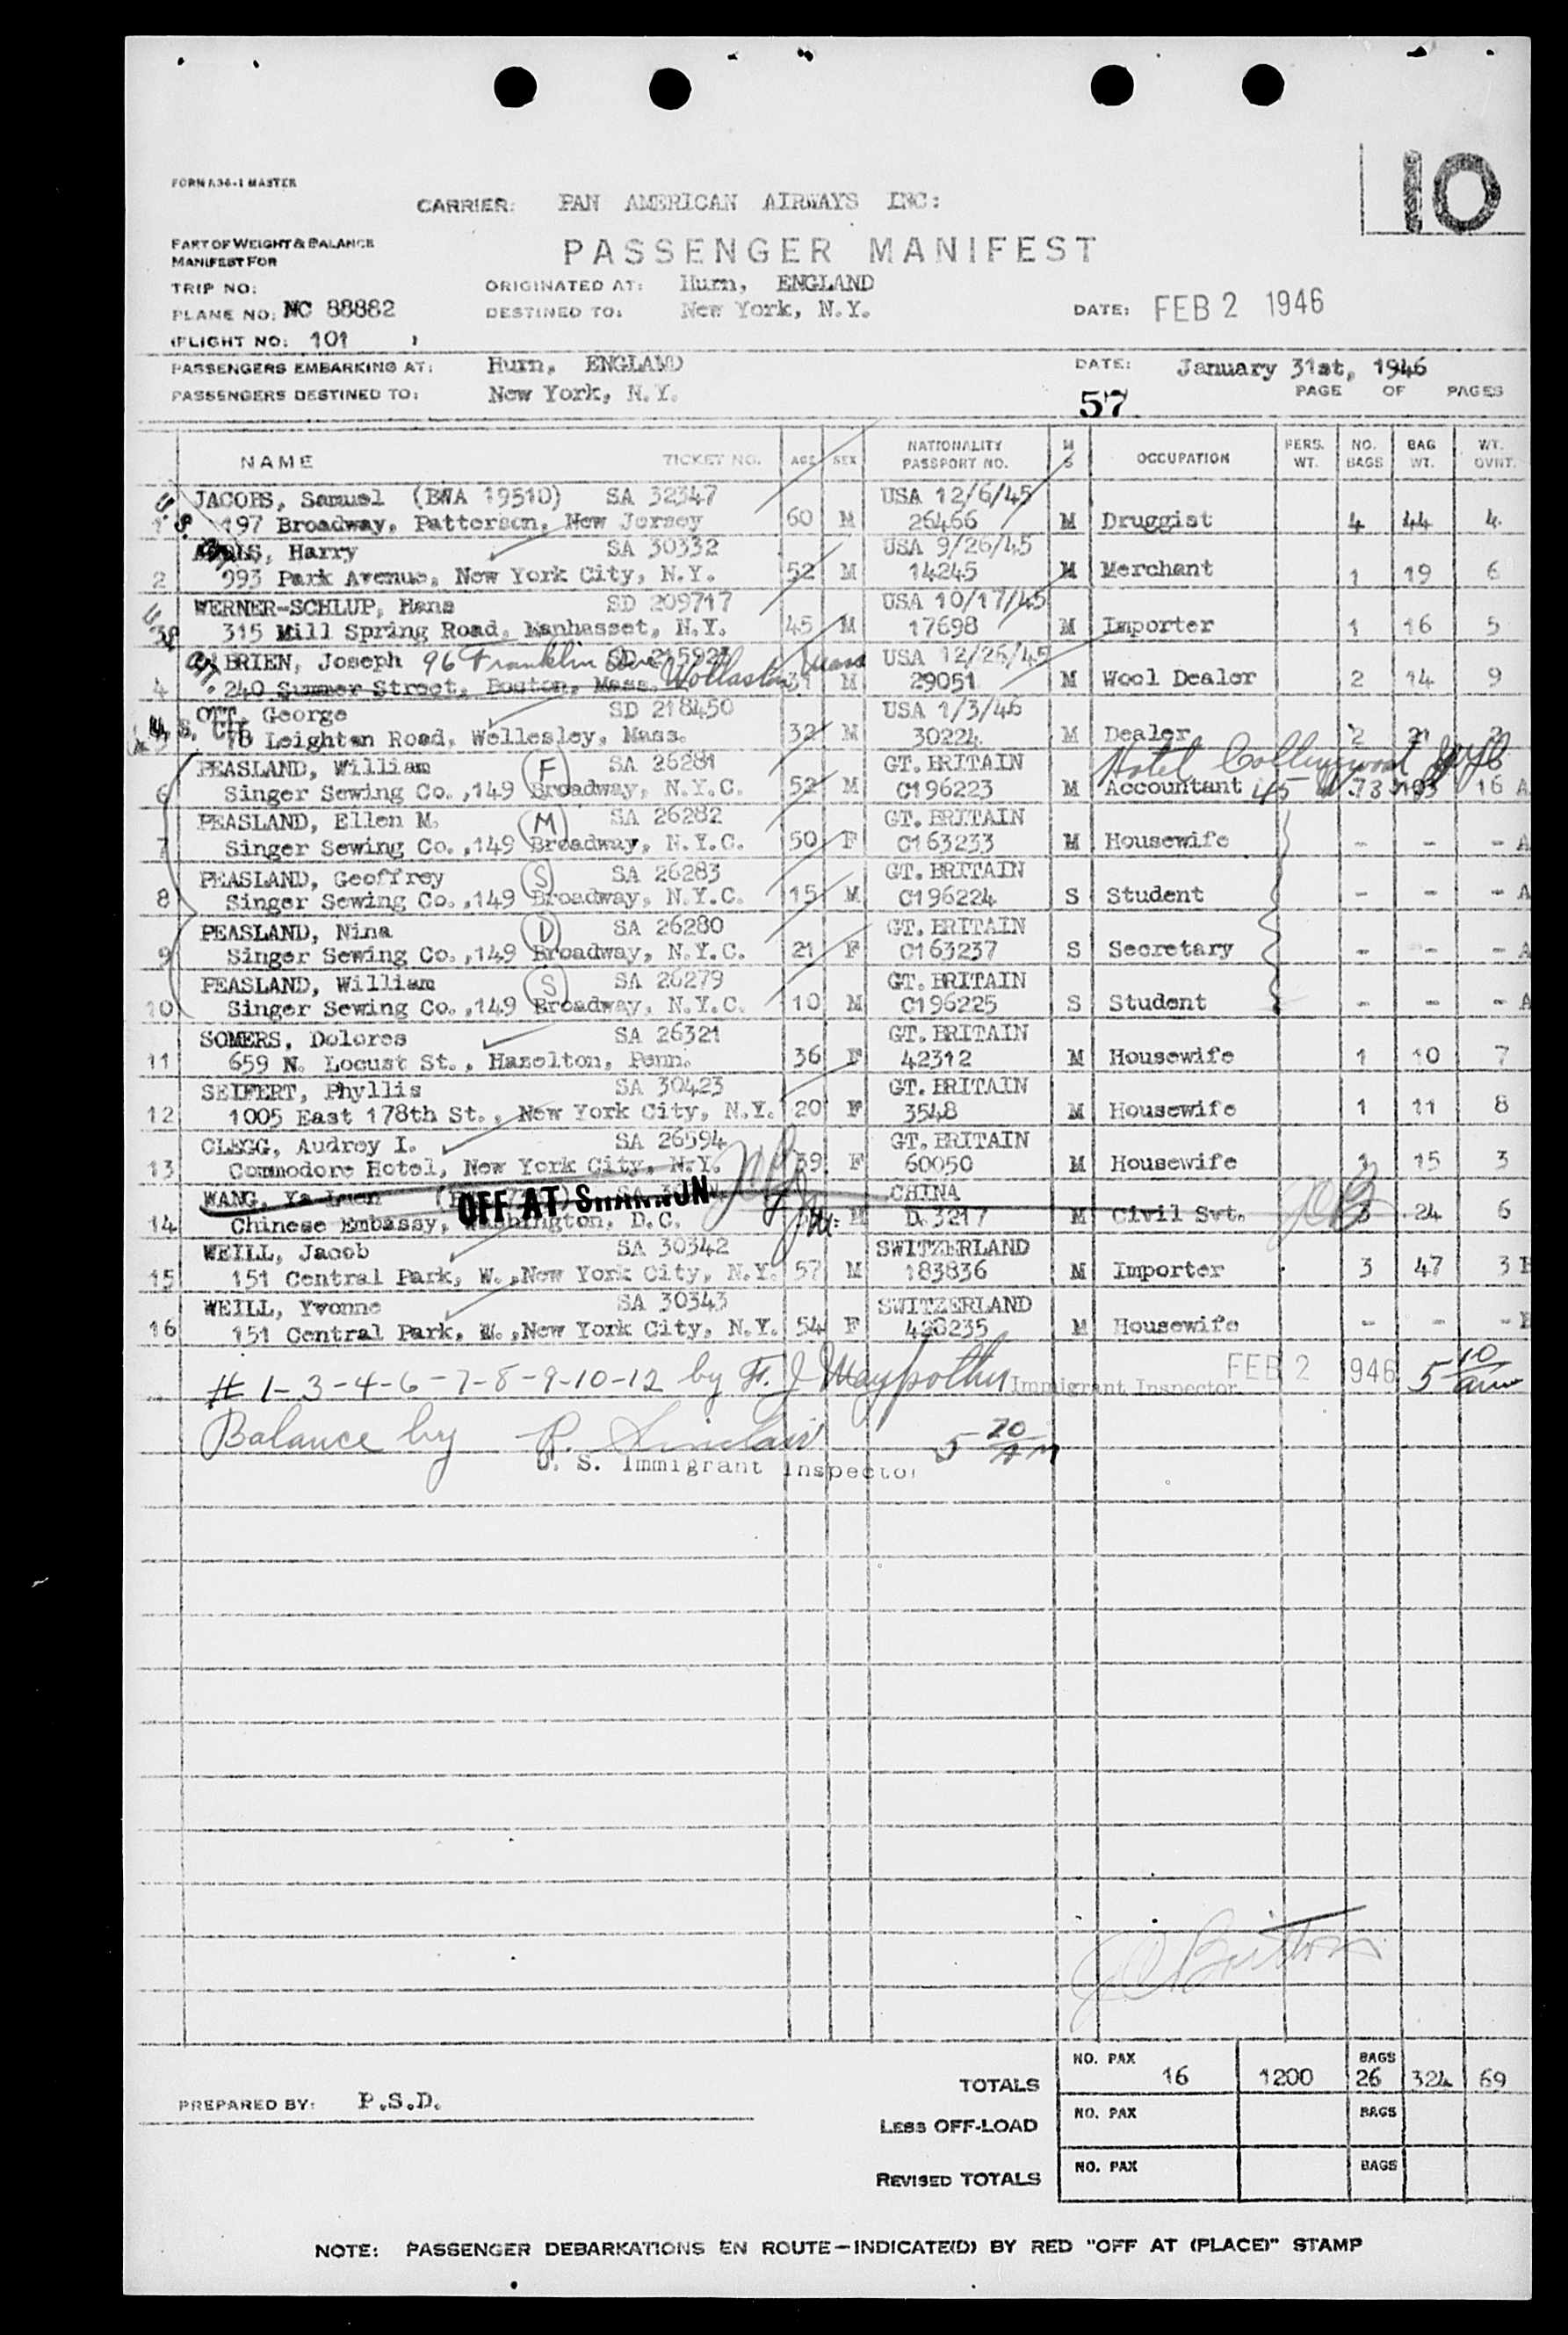 10
FORM A36-1 MASTER
CARRIER: PAN AMERICAN AIRWAYS INC:
PART OF WEIGHT & BALANCE
MANIFEST FOR
PASSENGER MANIFEST
TRIP NO:
ORIGINATED AT: Hurn, ENGLAND
PLANE NO: NC 88882
DESTINED TO: New York, N.Y.
DATE: FEB 2 1946
(FLIGHT NO: 101 )
PASSENGERS EMBARKING AT: Hurn, ENGLAND
DATE: January 31st, 1946
PASSENGERS DESTINED TO: New York, N.Y.
57
PAGE OF PAGES
NAME TICKET NO. AGE SEX NATIONALITY PASSPORT NO. M S OCCUPATION PERS. WT. NO. BAGS BAG WT. WT. OVWT.
JACOBS, Samuel (BWA 19510) SA 32347 USA 12/6/45
1 197 Broadway, Patterson, New Jersey 60 M 26466 M Druggist 4 44 4
U.S. Cit.
Harry SA 30332 USA 9/26/45
2 993 Park Avenue, New York City, N.Y. 52 M 14245 M Merchant 1 19 6
WERNER-SCHLUP, Hans SD 209717 USA 10/17/45
3 315 Mill Spring Road, Manhasset, N.Y. 45 M 17698 M Importer 1 16 5
U.S. Cit.
O'BRIEN, Joseph 96 Franklin Ave SD 215923 USA 12/26/45
Wollaston Mass
4 240 Summer Street, Boston, Mass. 31 M 29051 M Wool Dealer 2 14 9
OTT, George SD 218450 USA 1/3/46
U.S. Cit.
78 Leighton Road, Wellesley, Mass. 32 M 30224 M Dealer 2 21 2
PEASLAND, William (F) SA 26281 GT. BRITAIN Hotel Collingwood
6 Singer Sewing Co.,149 Broadway, N.Y.C. 52 M C196223 M Accountant 45 W 16 A
PEASLAND, Ellen M. (M) SA 26282 GT. BRITAIN
7 Singer Sewing Co.,149 Broadway, N.Y.C. 50 F C163233 M Housewife - - - A
PEASLAND, Geoffrey (S) SA 26283 GT. BRITAIN
8 Singer Sewing Co.,149 Broadway, N.Y.C. 15 M C196224 S Student - - - A
PEASLAND, Nina (D) SA 26280 GT. BRITAIN
9 Singer Sewing Co.,149 Broadway, N.Y.C. 21 F C163237 S Secretary - - - A
PEASLAND, William (S) SA 26279 GT. BRITAIN
10 Singer Sewing Co.,149 Broadway, N.Y.C. 10 M C196225 S Student - - - A
SOMERS, Dolores SA 26321 GT. BRITAIN
11 659 N. Locust St., Hazelton, Penn. 36 F 42312 M Housewife 1 10 7
SEIFERT, Phyllis SA 30423 GT. BRITAIN
12 1005 East 178th St., New York City, N.Y. 20 F 3548 M Housewife 1 11 8
CLEGG, Audrey I. SA 26594 GT. BRITAIN
13 Commodore Hotel, New York City, N.Y. 39 F 60050 M Housewife 1 15 3
WANG, Ya-Luen OFF AT SHANNON CHINA
14 Chinese Embassy, Washington, D.C. M D.3217 M Civil Svt. 3 24 6
WEILL, Jacob SA 30342 SWITZERLAND
15 151 Central Park, W.,New York City, N.Y. 57 M 183836 M Importer 3 47 3 B
WEILL, Yvonne SA 30343 SWITZERLAND
16 151 Central Park, W.,New York City, N.Y. 54 F 428235 M Housewife - - - B
# 1-3-4-6-7-8-9-10-12 by F. J. Immigrant Inspector FEB 2 1946 5 10/am
Balance by P. Sinclair 5 20/AM
U. S. Immigrant Inspector
TOTALS NO. PAX 16 1200 BAGS 26 324 69
PREPARED BY: P.S.D.
LESS OFF-LOAD NO. PAX BAGS
REVISED TOTALS NO. PAX BAGS
NOTE: PASSENGER DEBARKATIONS EN ROUTE—INDICATE(D) BY RED "OFF AT (PLACE)" STAMP